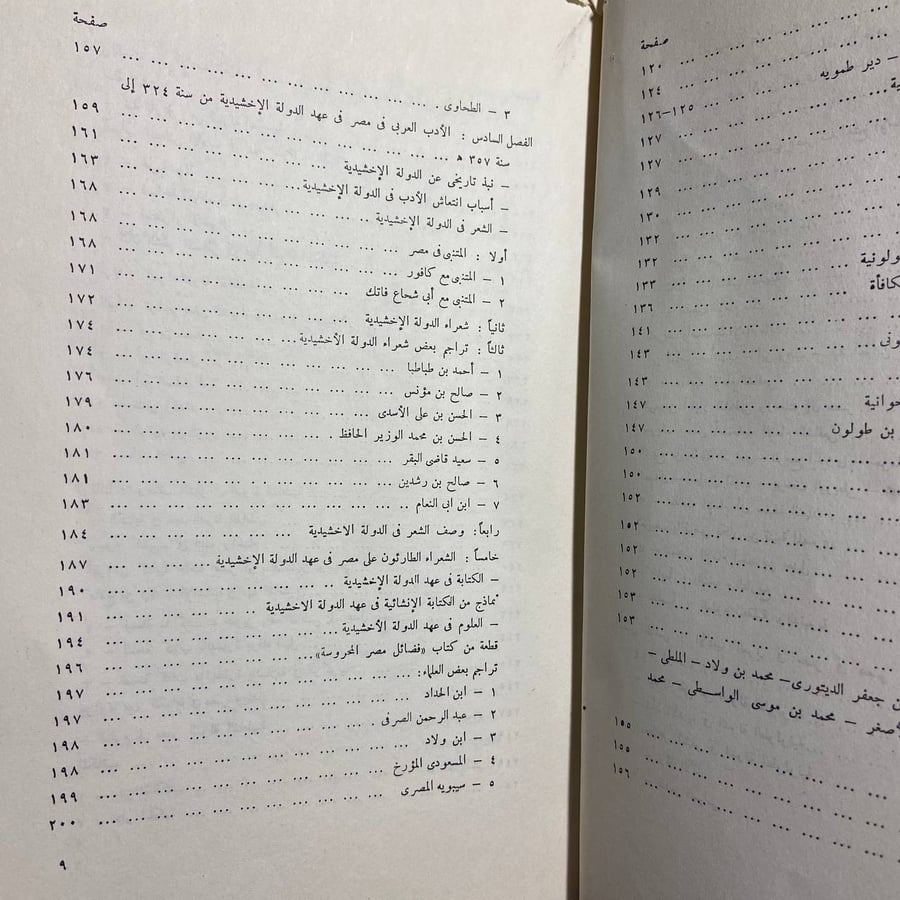 صفحة
... ١٢٠
... ١٢٤
– دير طمويه ... ١٢٥–١٢٦
ية ... ١٢٧
... ١٢٧
... ١٢٩
... ١٣٠
... ١٣٢
... ١٣٢
ولونية ... ١٣٣
كافأة ... ١٣٦
... ١٤١
ونى ... ١٤٣
... ١٤٣
حوانية ... ١٤٧
بن طولون ... ١٤٧
... ١٥٠
... ١٥٠
... ١٥٢
... ١٥٢
... ١٥٢
... ١٥٢
... ١٥٣
... ١٥٣
ن جعفر الديتورى – محمد بن ولاد – الملطى –
أصغر – محمد بن موسى الواسطى – محمد
... ١٥٥
... ١٥٥
... ١٥٦
صفحة
٣ – الطحاوى ... ١٥٧
الفصل السادس : الأدب العربى فى مصر فى عهد الدولة الإخشيدية من سنة ٣٢٤ إلى
سنة ٣٥٧ ﻫ ... ١٥٩
– نبذ تاريخى عن الدولة الإخشيدية ... ١٦١
– أسباب انتعاش الأدب فى الدولة الإخشيدية ... ١٦٣
– الشعر فى الدولة الإخشيدية ... ١٦٨
أولا : المتنبى فى مصر ... ١٦٨
١ – المتنبى مع كافور ... ١٦٨
٢ – المتنبى مع أبى شحاع فاتك ... ١٧١
ثانياً : شعراء الدولة الإخشيدية ... ١٧٢
ثالثاً : تراجم بعض شعراء الدولة الأخشيدية ... ١٧٤
١ – أحمد بن طباطبا ... ١٧٤
٢ – صالح بن مؤنس ... ١٧٦
٣ – الحسن بن على الأسدى ... ١٧٩
٤ – الحسن بن محمد الوزير الحافظ ... ١٨٠
٥ – سعيد قاضى البقر ... ١٨١
٦ – صالح بن رشدين ... ١٨١
٧ – ابن ابى النعام ... ١٨٣
رابعاً : وصف الشعر فى الدولة الاخشيدية ... ١٨٤
خامساً : الشعراء الطارئون على مصر فى عهد الدولة الإخشيدية ... ١٨٧
– الكتابة فى عهد الدولة الإخشيدية ... ١٩٠
نماذج من الكتابة الإنشائية فى عهد الدولة الاخشيدية ... ١٩١
– العلوم فى عهد الدولة الأخشيدية ... ١٩٤
قطعة من كتاب «فضائل مصر المحروسة» ... ١٩٦
تراجم بعض العلماء : ... ١٩٧
١ – ابن الحداد ... ١٩٧
٢ – عبد الرحمن الصرفى ... ١٩٨
٣ – ابن ولاد ... ١٩٨
٤ – المسعودى المؤرخ ... ١٩٩
٥ – سيبويه المصرى ... ٢٠٠
٩